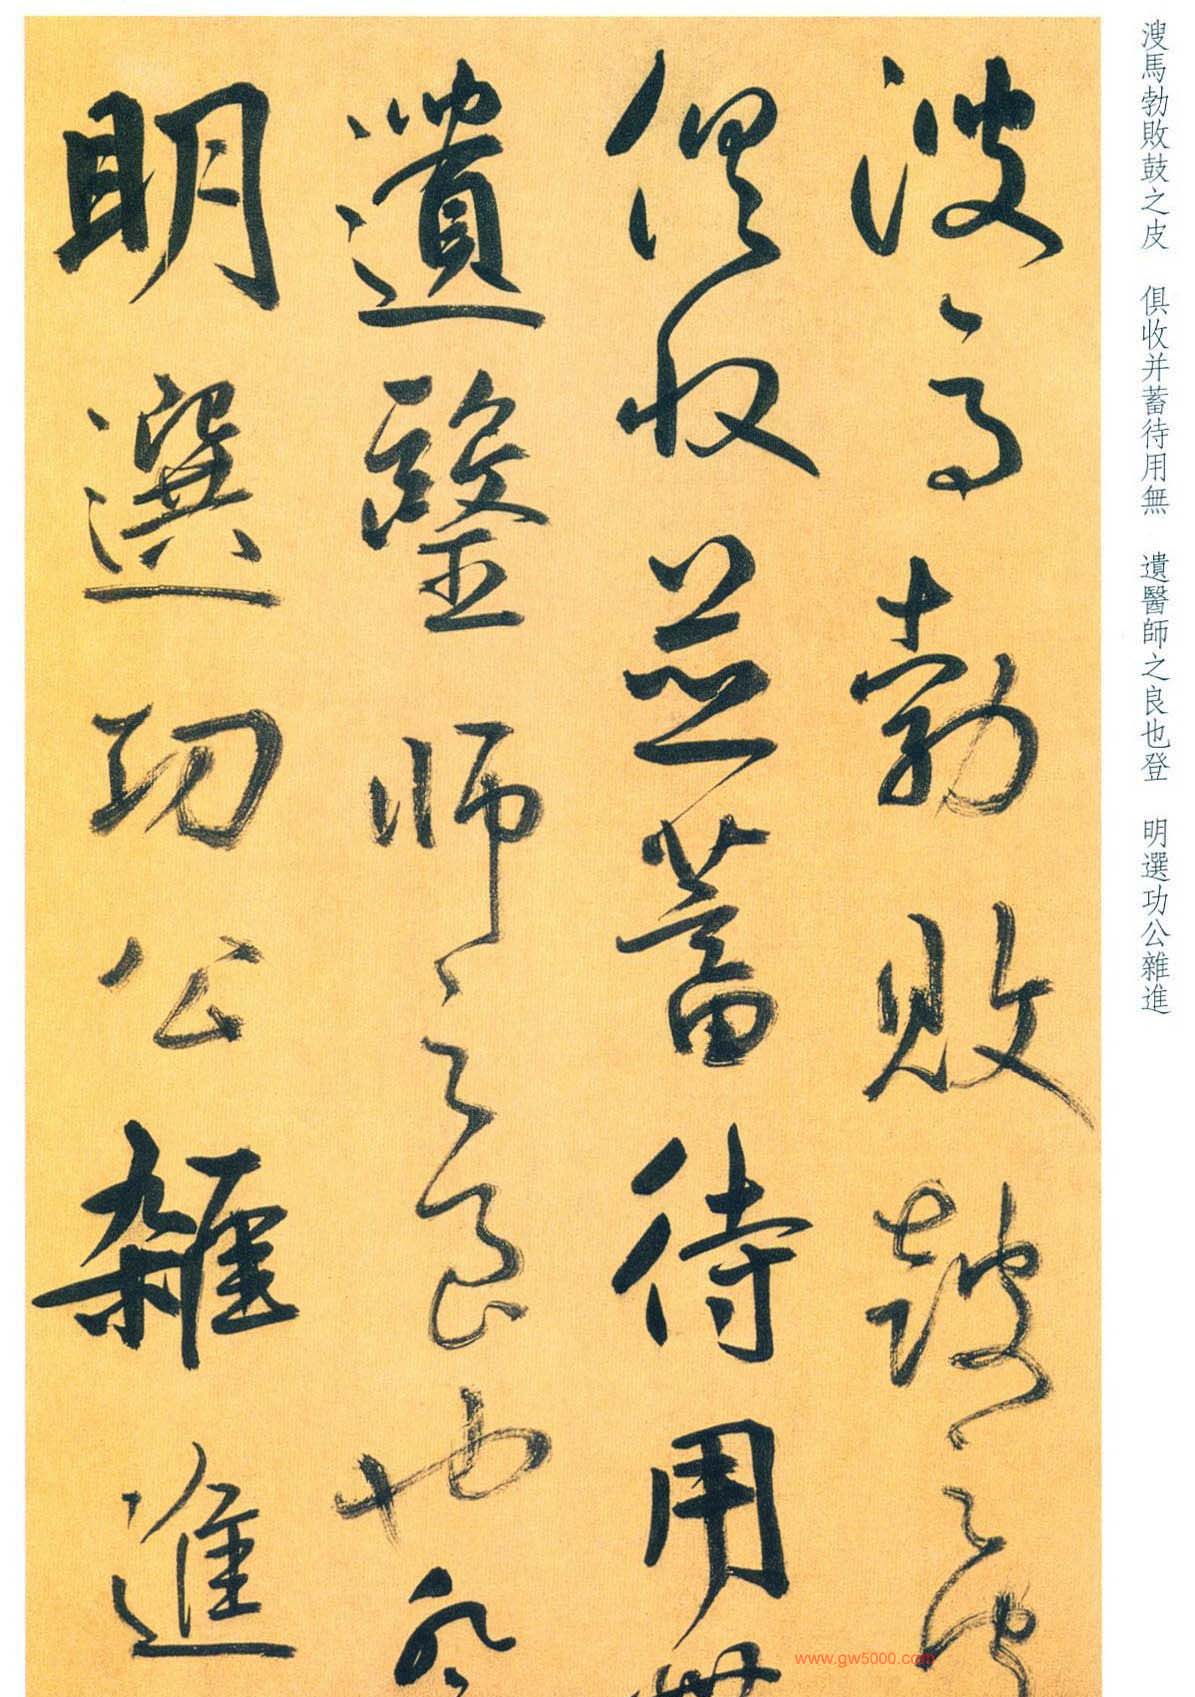 溲馬勃敗鼓之皮　俱收并蓄待用無　遺醫師之良也登　明選功公雜進
溲馬勃敗鼓之皮
俱收並蓄待用無
遺醫師之良也登
明選功公雜進
www.gw5000.com